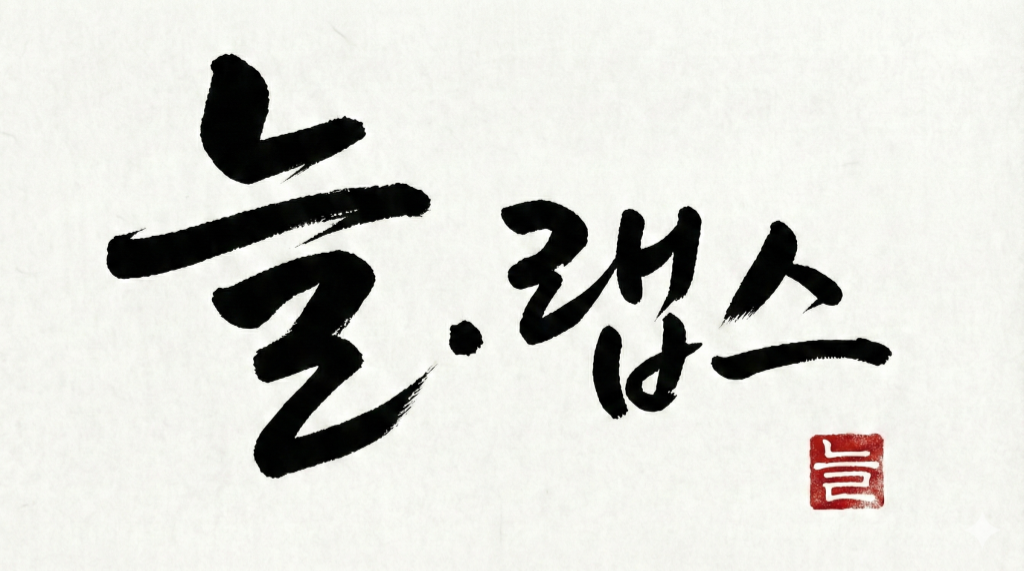 늘.랩스
늘